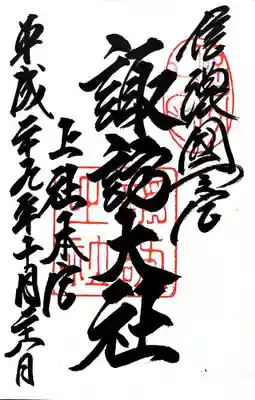 信濃國一之宮
諏訪大社
上社本宮
平成二十九年十月